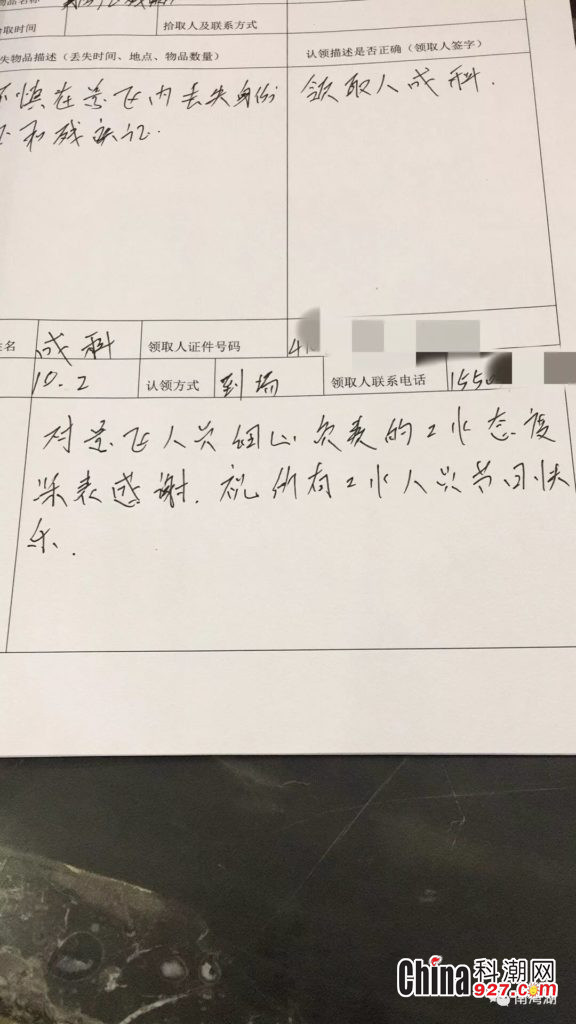 物品名称
拾取时间 拾取人及联系方式
失物品描述（丢失时间、地点、物品数量） 认领描述是否正确（领取人签字）
不慎在景区内丢失身份 领取人成科.
证和残疾证.
姓名 成科 领取人证件号码 41
10.2 认领方式 到场 领取人联系电话 1550
对景区人员细心负责的工作态度
深表感谢.祝所有工作人员节日快
乐.
China科潮网
927.com
南湾湖